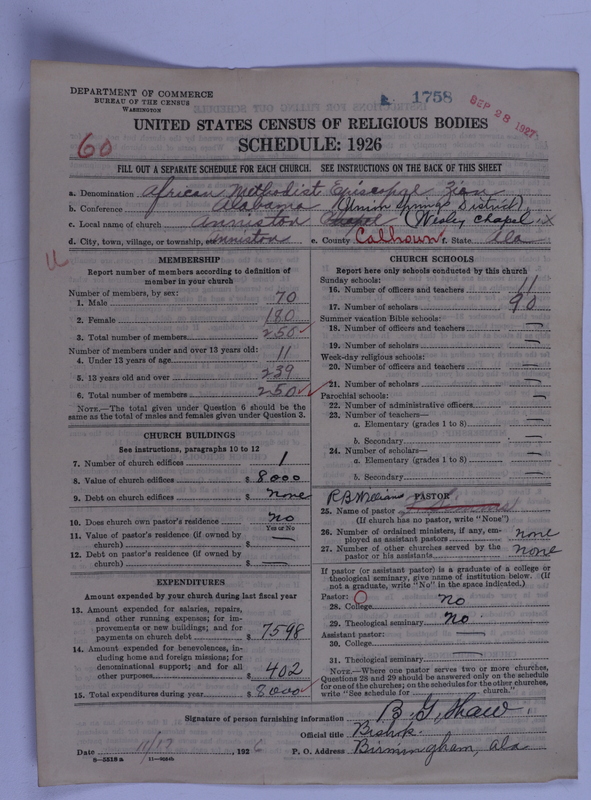 DEPARTMENT OF COMMERCE
BUREAU OF THE CENSUS
WASHINGTON
1758
SEP 28 1927
UNITED STATES CENSUS OF RELIGIOUS BODIES
60
SCHEDULE: 1926
FILL OUT A SEPARATE SCHEDULE FOR EACH CHURCH. SEE INSTRUCTIONS ON THE BACK OF THIS SHEET
a. Denomination African Methodist Episcopal Zion
b. Conference Alabama (Union Springs District)
c. Local name of church Anniston Chapel (Wesley Chapel
d. City, town, village, or township, etc. Anniston e. County Calhoun f. State Ala
MEMBERSHIP
Report number of members according to definition of
member in your church
Number of members, by sex:
1. Male 70
2. Female 180
3. Total number of members 250
Number of members under and over 13 years old:
4. Under 13 years of age 11
5. 13 years old and over 239
6. Total number of members 250
NOTE.—The total given under Question 6 should be the
same as the total of males and females given under Question 3.
CHURCH BUILDINGS
See instructions, paragraphs 10 to 12
7. Number of church edifices 1
8. Value of church edifices $ 8000
9. Debt on church edifices $ none
10. Does church own pastor's residence no
Yes or No
11. Value of pastor's residence (if owned by
church) $ —
12. Debt on pastor's residence (if owned by
church) $ —
EXPENDITURES
Amount expended by your church during last fiscal year
13. Amount expended for salaries, repairs,
and other running expenses; for im-
provements or new buildings; and for
payments on church debt $ 7598
14. Amount expended for benevolences, in-
cluding home and foreign missions; for
denominational support; and for all
other purposes $ 402
15. Total expenditures during year $ 8000
CHURCH SCHOOLS
Report here only schools conducted by this church
Sunday schools:
16. Number of officers and teachers 11
17. Number of scholars 90
Summer vacation Bible schools:
18. Number of officers and teachers —
19. Number of scholars —
Week-day religious schools:
20. Number of officers and teachers —
21. Number of scholars —
Parochial schools:
22. Number of administrative officers —
23. Number of teachers—
a. Elementary (grades 1 to 8) —
b. Secondary —
24. Number of scholars—
a. Elementary (grades 1 to 8) —
b. Secondary —
R B Williams PASTOR
25. Name of pastor
(If church has no pastor, write "None")
26. Number of ordained ministers, if any, em-
ployed as assistant pastors none
27. Number of other churches served by the
pastor or his assistants none
If pastor (or assistant pastor) is a graduate of a college or
theological seminary, give name of institution below. (If
not a graduate, write "No" in the space indicated.)
Pastor:
28. College no
29. Theological seminary no.
Assistant pastor:
30. College —
31. Theological seminary —
NOTE.—Where one pastor serves two or more churches,
Questions 28 and 29 should be answered only on the schedule
for one of the churches; on the schedules for the other churches,
write "See schedule for church."
Signature of person furnishing information B. G. Shaw
Official title Bishop.
Date 11/17, 1926 P. O. Address Birmingham, Ala
8—5518 a